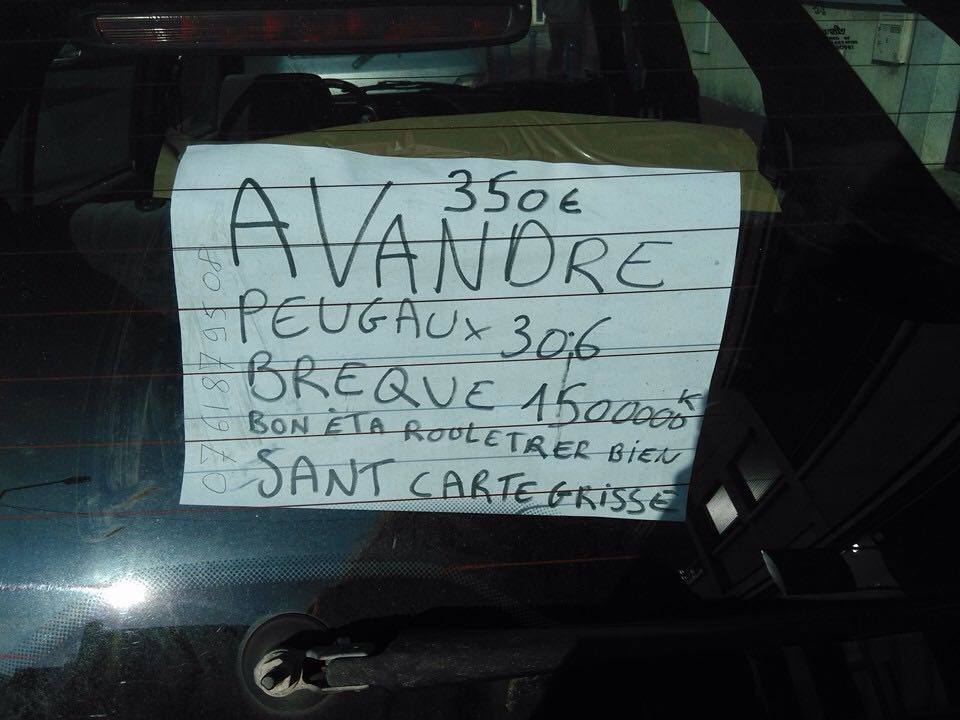 350€
AVANDRE
PEUGAUX 30,6
BREQUE 1500000K
BON ÈTA ROULETRER BIEN
SANT CARTE GRISSE
0761879508